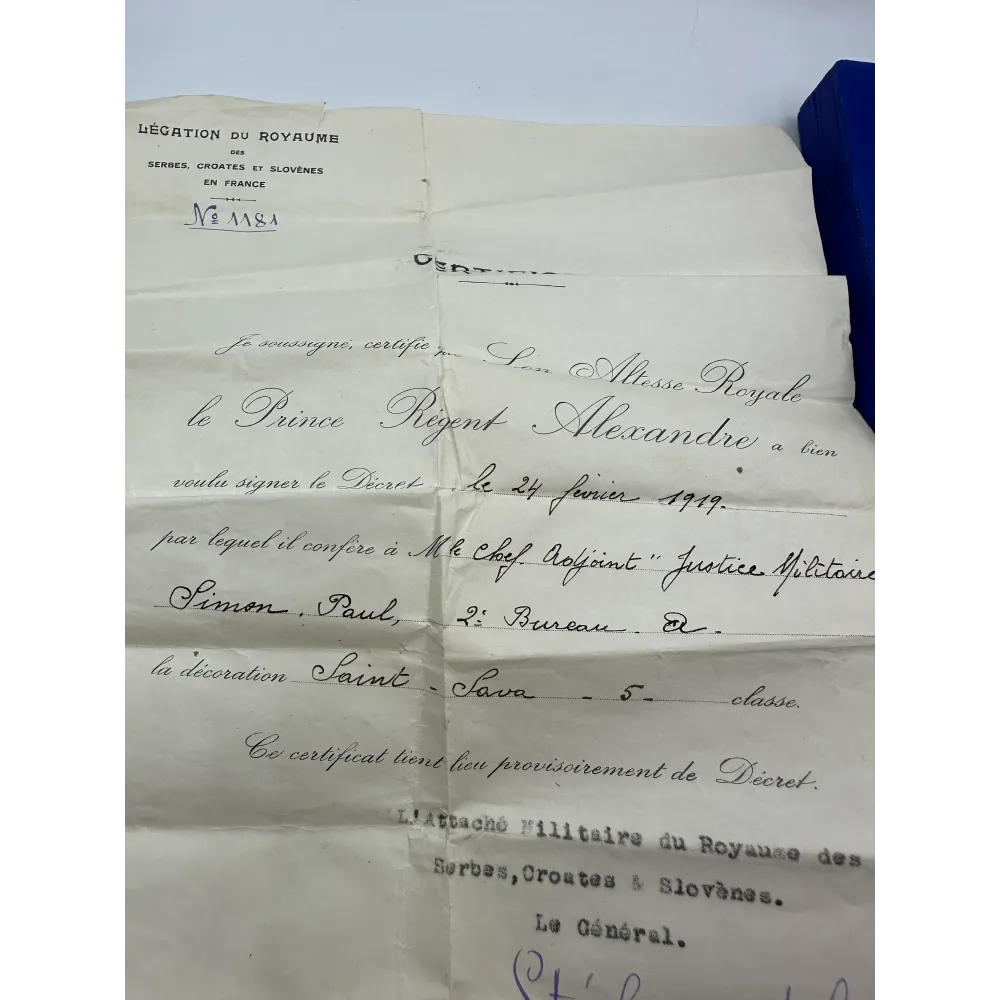 LÉGATION DU ROYAUME
DES
SERBES, CROATES ET SLOVÈNES
EN FRANCE
Nº 1181
Je soussigné, certifie que Son Altesse Royale
le Prince Régent Alexandre a bien
voulu signer le Décret le 24 février 1919.
par lequel il confère à M le Chef Adjoint " Justice Militaire
Simon, Paul, 2e Bureau
la décoration Saint-Sava - 5 - classe.
Ce certificat tient lieu provisoirement de Décret.
L'Attaché Militaire du Royaume des
Serbes, Croates & Slovènes.
Le Général.